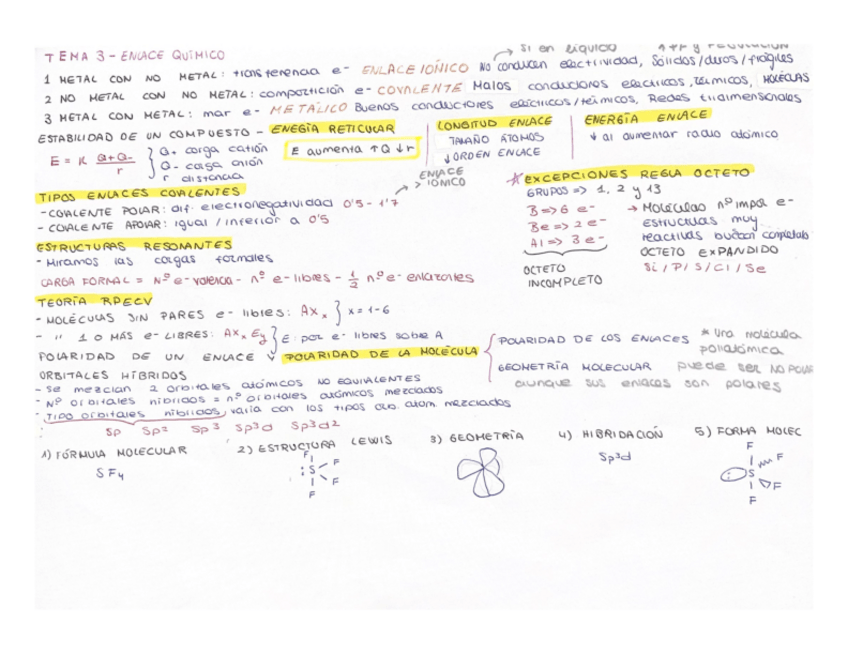 SI en líquido
TEMA 3 - ENLACE QUÍMICO
1 METAL CON NO METAL: transferencia e- ENLACE IÓNICO No conducen electricidad, Sólidos/duros/frágiles
2 NO METAL CON NO METAL: compartición e- COVALENTE Malos conductores eléctricos, térmicos, MOLÉCULAS
3 METAL CON METAL: mar e- METÁLICO Buenos conductores eléctricos/térmicos, Redes tridimensionales
ESTABILIDAD DE UN COMPUESTO - ENEGÍA RETICULAR
E = K Q+Q- / r
Q+ carga catión
Q- carga anión
r distancia
E aumenta ↑Q ↓r
LONGITUD ENLACE
TAMAÑO ÁTOMOS
↓ORDEN ENLACE
ENERGÍA ENLACE
↓ al aumentar radio atómico
TIPOS ENLACES COVALENTES
- COVALENTE POLAR: dif. electronegatividad 0'5 - 1'7
> ENLACE IÓNICO
- COVALENTE APOLAR: igual / inferior a 0'5
* EXCEPCIONES REGLA OCTETO
GRUPOS => 1, 2 y 13
B => 6 e-
Be => 2 e-
Al => 3 e-
OCTETO INCOMPLETO
→ Moléculas nº impar e-
estructuras muy
reactivas buscan completarlo
OCTETO EXPANDIDO
Si / P / S / Cl / Se
ESTRUCTURAS RESONANTES
- Miramos las cargas formales
CARGA FORMAL = Nº e- valencia - nº e- libres - 1/2 nº e- enlazantes
TEORÍA RPECV
- MOLÉCULAS SIN PARES e- libres: AXx } x = 1-6
- " 1 O MÁS e- LIBRES: AXx Ey } E: par e- libres sobre A
POLARIDAD DE UN ENLACE Y POLARIDAD DE LA MOLÉCULA
POLARIDAD DE LOS ENLACES
GEOMETRÍA MOLECULAR
* Una molécula
poliatómica
puede ser NO POLAR
aunque sus enlaces son polares
ORBITALES HÍBRIDOS
- Se mezclan 2 orbitales atómicos NO EQUIVALENTES
- Nº orbitales híbridos = nº orbitales atómicos mezclados
- Tipo orbitales híbridos, varía con los tipos orb. atom. mezclados
Sp Sp2 Sp3 Sp3d Sp3d2
1) FÓRMULA MOLECULAR
SF4
2) ESTRUCTURA LEWIS
F
:S
F
F
F
3) GEOMETRÍA
4) HIBRIDACIÓN
Sp3d
5) FORMA MOLEC
F
F
S
F
F